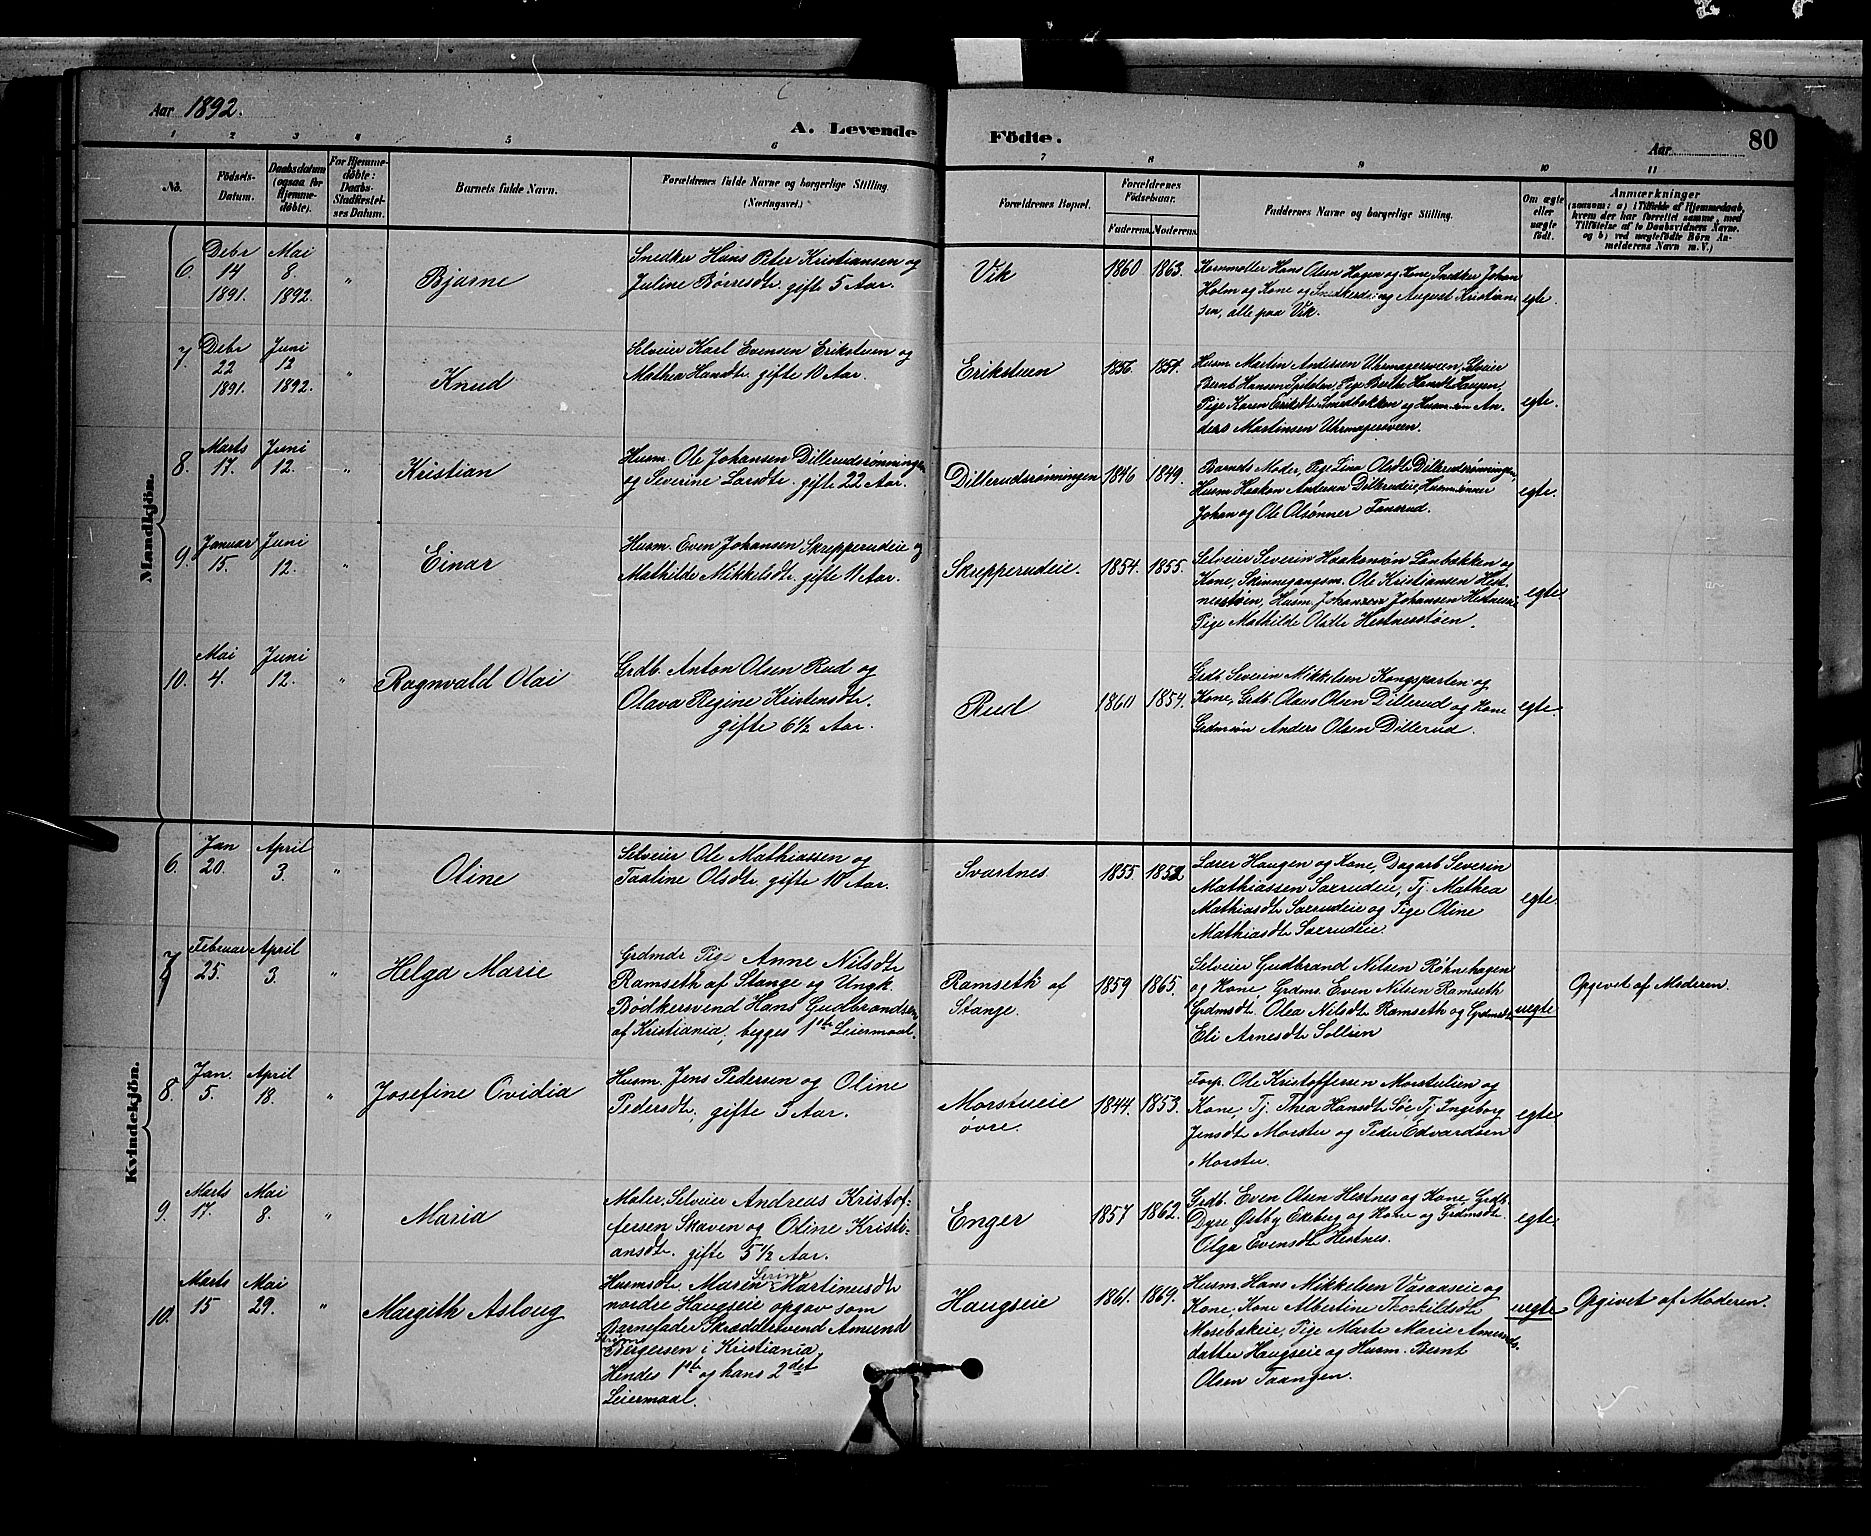 Aar 1892.
A. Levende Födte.
Aar
80
1 2 3 4 5 6 7 8 9 10 11
No.
Födsels-Datum.
Daabsdatum (ogsaa for Hjemme-döbte).
For Hjemme-döbte: Daabs-Stadfæstel-ses Datum.
Barnets fulde Navn.
Forældrenes fulde Navne og borgerlige Stilling. (Næringsvei.)
Forældrenes Bopæl.
Forældrenes Födselsaar.
Faderens. Moderens.
Faddernes Navne og borgerlige Stilling.
Om ægte eller uægte født.
Anmærkninger
(saasom: a) i Tilfælde af Hjemmedaab, hvem der har forrettet samme, med Tilföielse af to Daabsvidners Navne, og b) ved uægtefödte Börn An-melderens Navn m. V.)
Mandkjön.
6. Debr 14 1891. Mai 8 1892. " Bjarne
Snedker Hans Peter Kristiansen og
Juline Börresdtr. gifte 5 Aar.
Vik 1860 1863.
Kornmøller Hans Olsen Hagen og Kone, Snedker Johan
Holm og Kone og Snedkerdreng August Kristian-
sen, alle paa Vik.
egte.
7. Debr 22 1891. Juni 12 1892. " Knud
Selveier Karl Evensen Eriksteen og
Mathea Hansdtr. gifte 10 Aar.
Eriksteen 1856
Husm. Martin Andersen Uhrmagersveen, Selveier
Bernt Hansen Spitalen, Pige Berte Hansdtr Haugen,
Pige Karen Eriksdtr Smedbakken og Husm.søn An-
ders Martinsen Uhrmagersveen.
egte.
8. Marts 17. Juni 12. " Kristian
Husm. Ole Johansen Dillerudsrønningen
og Severine Larsdtr. gifte 22 Aar.
Dillerudsrønningen 1846 1849.
Barnets Moder, Pige Lina Olsdtr Dillerudsrønningen,
Husm Haakon Andersen Dillerudeie, Husm.sønner
Johan og Ole Olsønner Fanerud.
egte.
9. Januar 15. Juni 12. " Einar
Husm. Even Johansen Skrepperudeie og
Mathilde Mikkelsdtr. gifte 11 Aar.
Skrepperudeie. 1854. 1855.
Selveier Severin Haakensøn Lønbakken og
Kone, Skinnegangsm. Ole Kristiansen Hest-
nesstøen, Husm. Johannes Johansen Hestneseie
Pige Mathilde Olsdtr Hestnesstøen.
egte
10. Mai 4. Juni 12. " Ragnvald Olai
Grdb. Anton Olsen Rud og
Olava Regine Kristensdtr.
gifte 6½ Aar.
Rud 1860 1854.
Grdb Severin Mikkelsen Kongsparten og
Kone, Grdb. Olavs Olsen Dillerud og Kone
Grdmsøn Anders Olsen Dillerud.
egte.
Kvindekjön.
6. Jan 20. April 3. " Oline
Selveier Ole Mathiassen og
Taaline Olsdtr. gifte 10 Aar.
Svartnes 1855
Lærer Haugen og Kone, Dagarb. Severin
Mathiassen Saxrudeie, Tj. Mathea
Mathiasdtr Saxrudeie og Pige Oline
Mathiasdtr Saxrudeie.
egte
7 Februar 25. April 3. " Helga Marie
Grdmdr Pige Anne Nilsdtr
Ramseth af Stange og Ungk.
Bødkersvend Hans Gudbrandsen
af Kristiania, begges 1ste Leiermaal.
Ramseth af Stange. 1859 1865.
Selveier Gudbrand Nilsen Røhnehagen
og Kone, Grdms. Even Nilsen Ramseth
Grdmsdtr. Olea Nilsdtr Ramseth og Grdmsdtr
Eli Arnesdtr Sollien
uegte
Opgivet af Moderen.
8. Jan. 5. April 18. " Josefine Ovidia
Husm. Jens Pedersen og Oline
Pedersdtr, gifte 3 Aar.
Morstueie øvre. 1844. 1853.
Forp. Ole Kristoffersen Morstulien og
Kone, Tj. Thea Hansdtr Søe Tj. Ingeborg
Jensdtr Morstu og Peder Edvardsen
Morstu.
egte
9. Marts 17. Mai 8. " Maria
Maler, Selveier Andreas Kristof-
fersen Skaven og Oline Kristi-
ansdtr. gifte 5½ Aar.
Enger 1857 1862.
Grdb. Even Olsen Hestnes og Kone, Grdb.
Dyre Østby Ekeberg og Kone og Grdmsdtr.
Olga Evensdtr Hestnes.
egte
10. Marts 15 Mai 29. " Margith Aslaug
Husmsdtr. Maren Serine Martinusdtr
nordre Haugseie opgav som
Barnefader Skræddersvend Amund
Bergersen i Kristiania,
Hendes 1ste og hans 2det
Leiermaal.
Haugseie 1861. 1869.
Husm. Hans Mikkelsen Vasaaseie og
Kone, Kone Albertine Thorkildsdtr
Mosebækeie, Pige Marte Marie Amunds-
datter Haugseie og Husm. Bernt
Olsen Taangen.
uegte
Opgivet af Moderen.